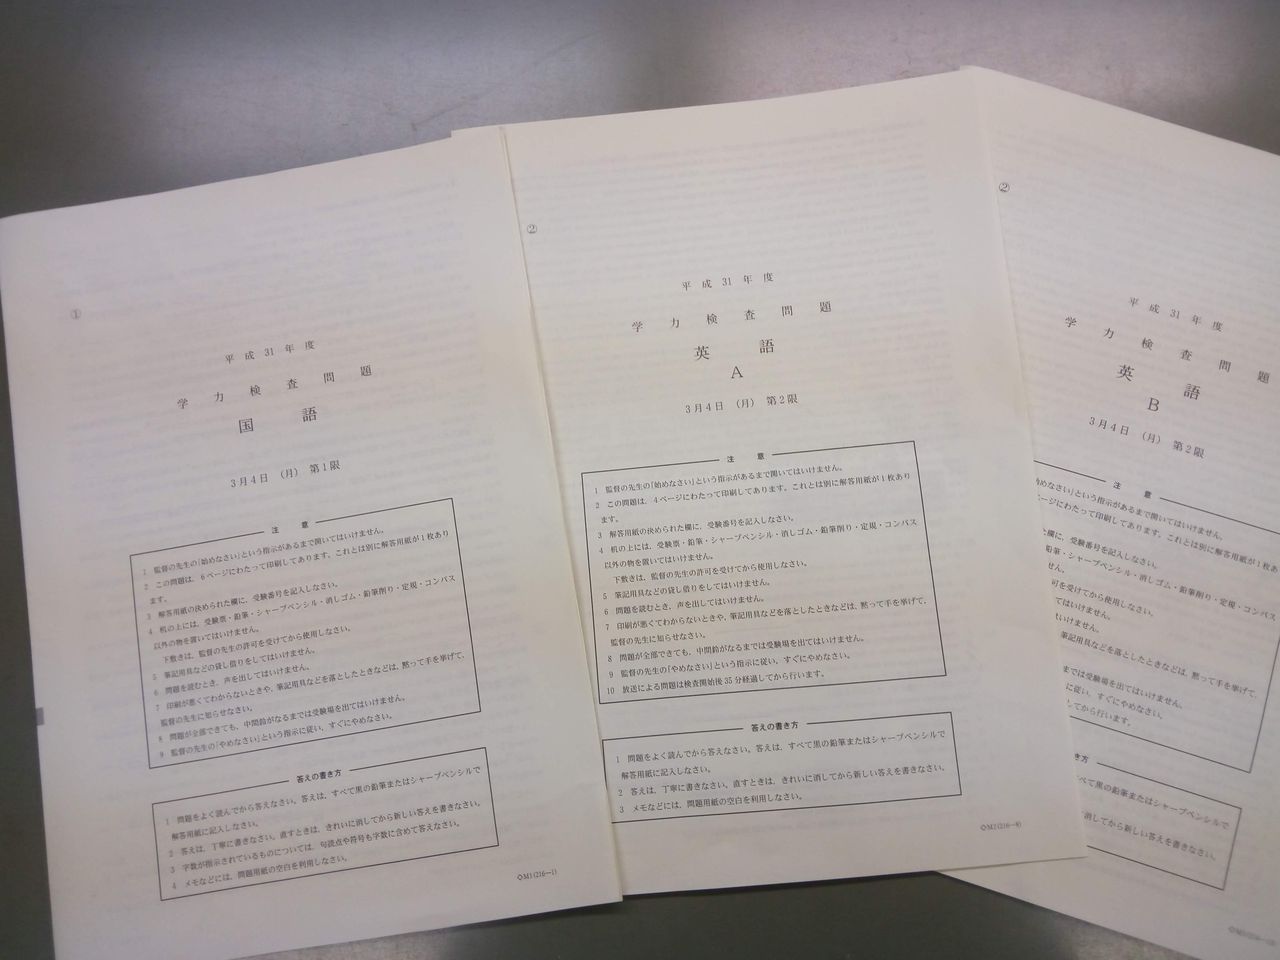 ①
平成31年度
学力検査問題
国語
3月4日（月）第1限
注意
1 監督の先生の「始めなさい」という指示があるまで開いてはいけません。
2 この問題は、6ページにわたって印刷してあります。これとは別に解答用紙が1枚あり
ます。
3 解答用紙の決められた欄に、受験番号を記入しなさい。
4 机の上には、受験票・鉛筆・シャープペンシル・消しゴム・鉛筆削り・定規・コンパス
以外の物を置いてはいけません。
下敷きは、監督の先生の許可を受けてから使用しなさい。
5 筆記用具などの貸し借りをしてはいけません。
6 問題を読むとき、声を出してはいけません。
7 印刷が悪くてわからないときや、筆記用具などを落としたときなどは、黙って手を挙げて、
監督の先生に知らせなさい。
8 問題が全部できても、中間鈴がなるまでは受験場を出てはいけません。
9 監督の先生の「やめなさい」という指示に従い、すぐにやめなさい。
答えの書き方
1 問題をよく読んでから答えなさい。答えは、すべて黒の鉛筆またはシャープペンシルで
解答用紙に記入しなさい。
2 答えは、丁寧に書きなさい。直すときは、きれいに消してから新しい答えを書きなさい。
3 字数が指示されているものについては、句読点や符号も字数に含めて答えなさい。
4 メモなどには、問題用紙の空白を利用しなさい。
◇M1(216—1)
②
平成31年度
学力検査問題
英語
A
3月4日（月）第2限
注意
1 監督の先生の「始めなさい」という指示があるまで開いてはいけません。
2 この問題は、4ページにわたって印刷してあります。これとは別に解答用紙が1枚あり
ます。
3 解答用紙の決められた欄に、受験番号を記入しなさい。
4 机の上には、受験票・鉛筆・シャープペンシル・消しゴム・鉛筆削り・定規・コンパス
以外の物を置いてはいけません。
下敷きは、監督の先生の許可を受けてから使用しなさい。
5 筆記用具などの貸し借りをしてはいけません。
6 問題を読むとき、声を出してはいけません。
7 印刷が悪くてわからないときや、筆記用具などを落としたときなどは、黙って手を挙げて、
監督の先生に知らせなさい。
8 問題が全部できても、中間鈴がなるまでは受験場を出てはいけません。
9 監督の先生の「やめなさい」という指示に従い、すぐにやめなさい。
10 放送による問題は検査開始後35分経過してから行います。
答えの書き方
1 問題をよく読んでから答えなさい。答えは、すべて黒の鉛筆またはシャープペンシルで
解答用紙に記入しなさい。
2 答えは、丁寧に書きなさい。直すときは、きれいに消してから新しい答えを書きなさい。
3 メモなどには、問題用紙の空白を利用しなさい。
◇M1(216—8)
②
平成31年度
学力検査問題
英語
B
3月4日（月）第2限
注意
始めなさい」という指示があるまで開いてはいけません。
ページにわたって印刷してあります。これとは別に解答用紙が1枚あ
欄に、受験番号を記入しなさい。
鉛筆・シャープペンシル・消しゴム・鉛筆削り・定規・コンパス
せん。
可を受けてから使用しなさい。
てはいけません。
はいけません。
筆記用具などを落としたときなどは、黙って手を挙げて、
までは受験場を出てはいけません。
に従い、すぐにやめなさい。
してから行います。
き方
べて黒の鉛筆またはシャープペンシルで
消してから新しい答えを書きなさい。